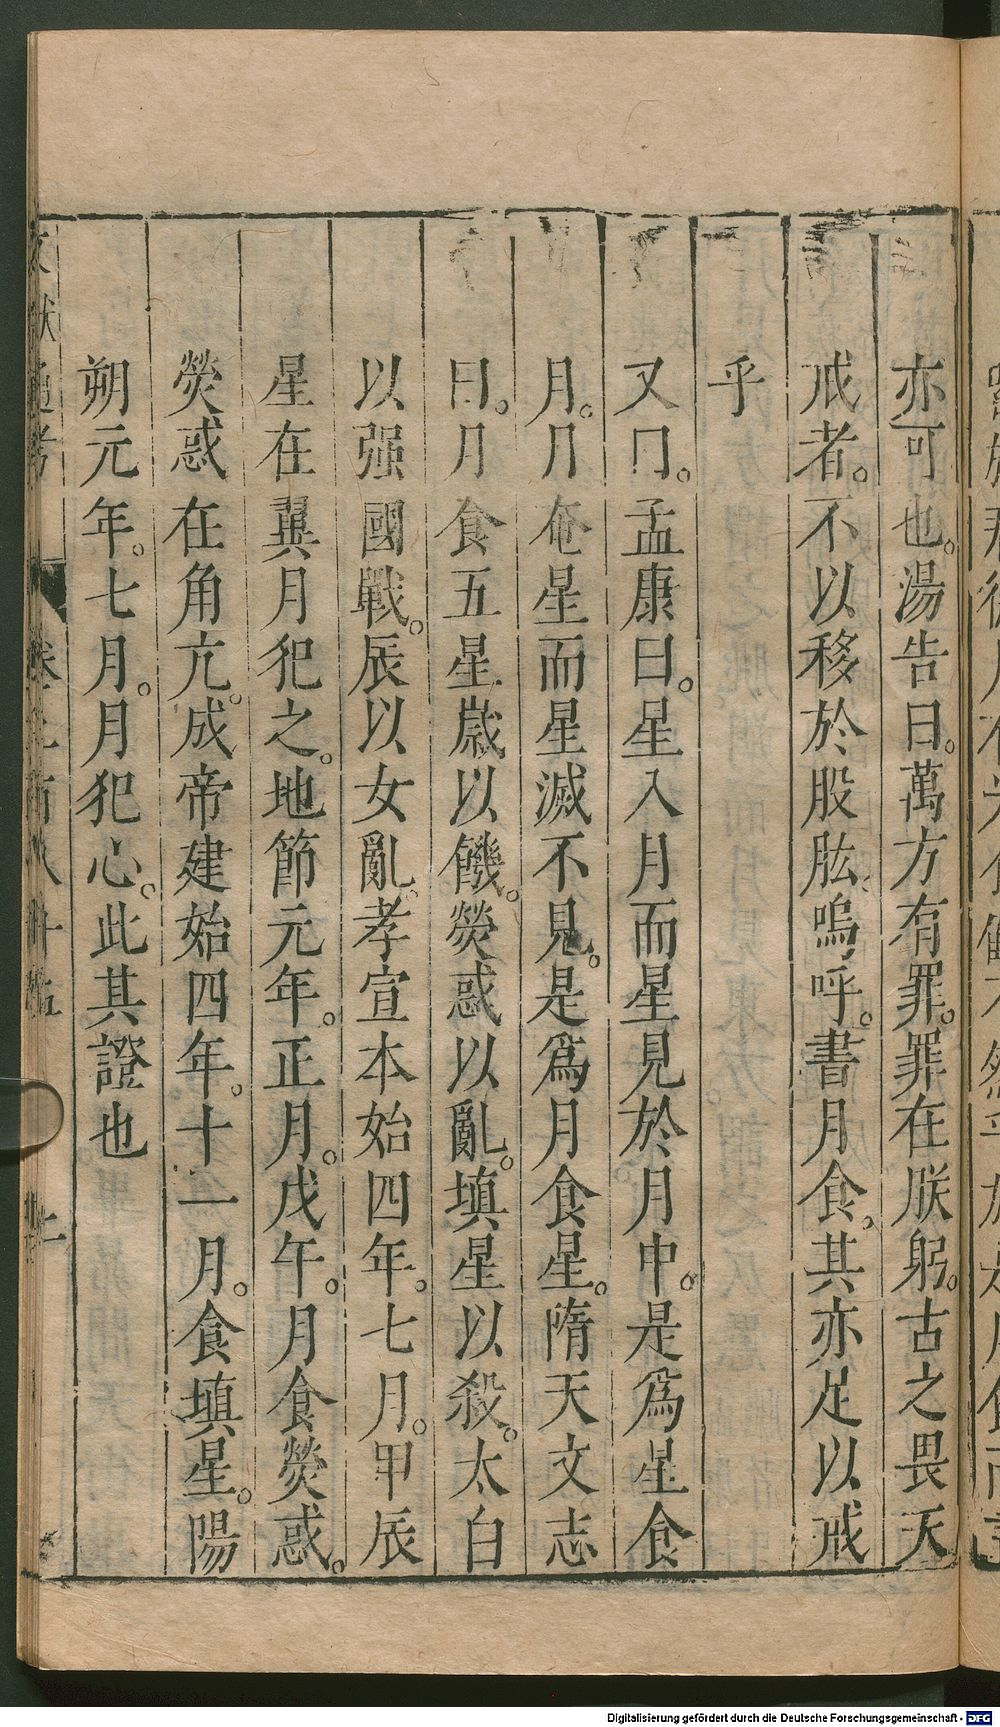 亦可也。湯告曰。萬方有罪。罪在朕躬。古之畏天
戒者。不以移於股肱、嗚呼。書月食、其亦足以戒
乎
又曰。孟康曰。星入月而星見於月中。是爲星食
月。月奄星而星滅不見。是爲月食星。隋天文志
曰。月食五星。歲以饑。熒惑以亂。填星以殺。太白
以强國戰。辰以女亂。孝宣本始四年。七月。甲辰
星在翼月犯之。地節元年。正月。戊午。月食熒惑。
熒惑在角亢。成帝建始四年。十一月。食填星。陽
朔元年。七月。月犯心。此其證也
文獻通考
Digitalisierung gefördert durch die Deutsche Forschungsgemeinschaft - DFG